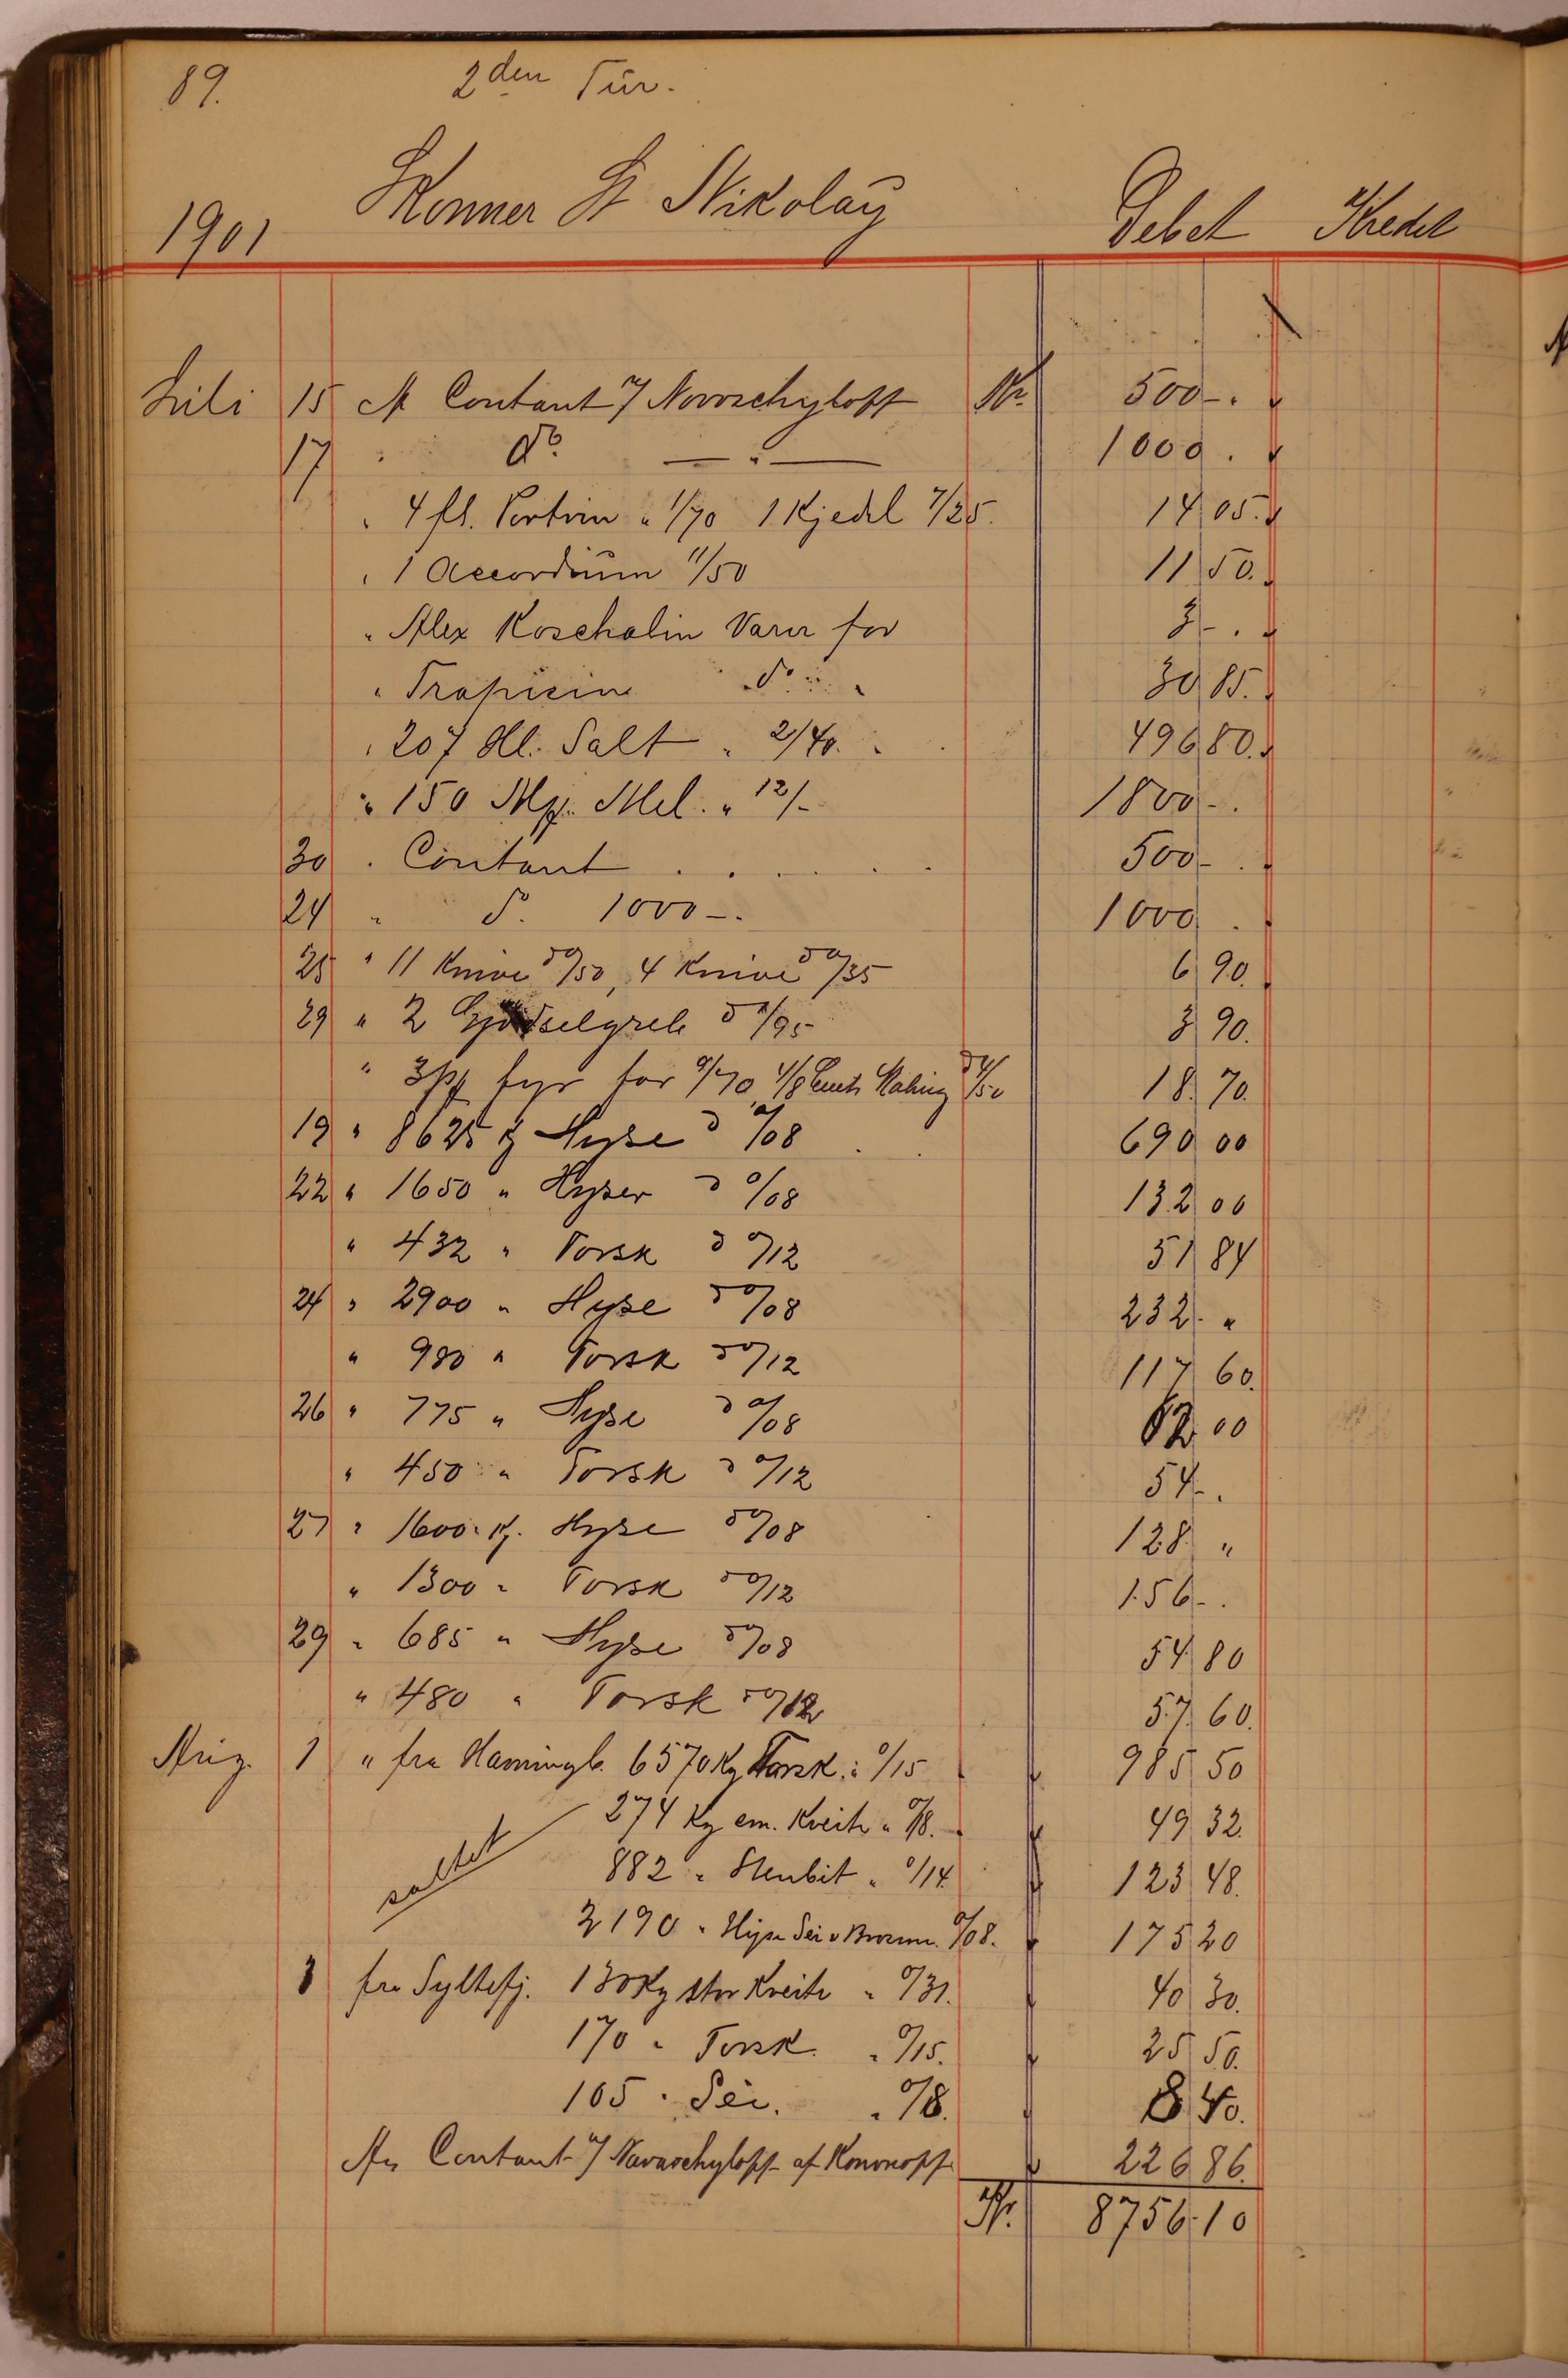 89. 2den Tür.
1901 Skonner St Nikolaÿ Debet Kredit
Juli 15 A Contant / Novoschyloff Kr. 500 - .
17 " do — " — 1000 .
" 4 fl. Portvin " 1/70 1 Kjedel 7/25. 14 05.
" 1 Accordiüm 11/50 11 50.
" Alex Koschalin Varer for 3 - .
" do " 30 85.
" 207 Hl. Salt " 2/40. 496 80.
" 150 Mp. Mel. " 12/- 1800 - .
30 " Contant . . . . . . 500 - .
24 " do. 1000 - . 1000 .
25 " 11 Knive à 0/50, 4 Knive à 0/35 6 90.
29 " 2 Gjødselgreb à 1/95 3 90.
" 3 for 0/70 4/8 à 4/50 18 70.
19 " 8625 kg Hyse à 0/08 690 00
22 " 1650 " Hyser à 0/08 132 00
" 432 " Torsk à 0/12 51 84
24 " 2900 " Hyse à 0/08 232 - "
" 980 " Torsk à 0/12 117 60.
26 " 775 " Hyse à 0/08 62 00
" 450 " Torsk à 0/12 54 - .
27 " 1600 " kg. Hyse à 0/08 128 "
" 1300 " Torsk à 0/12 156 - .
29 " 685 " Hyse à 0/08 54 80
" 480 " Torsk à 0/12 57 60.
Aug. 1 " fra Havningb. 6570 Kg Torsk " 0/15 985 50
274 Kg em. Kveite " 0/18. 49 32.
saltet 882 " Stenbit " 0/14 123 48.
2190 " Hyse Sei o Brosme. 0/08. 175 20
3 fra Syltefj. 130 Kg stor Kveite " 0/31. 40 30.
170 " Torsk. " 0/15. 25 50.
105 " Sei. " 0/8. 8 40.
An Contant / Navaschyloff af Kononoff 226 86.
Kr. 8756.10